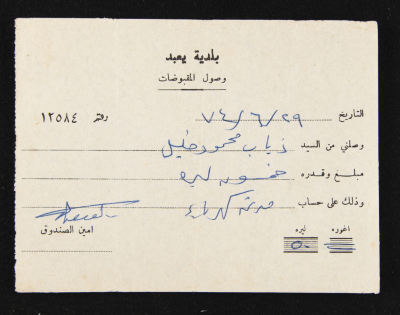 بلدية يعبد
وصول المقبوضات
التاريخ ٧٤/٦/٢٩ رقم ١٢٥٨٤
وصلني من السيد ذياب محمود خليل
مبلغ وقدره خمسون ليره
وذلك على حساب كهرباء
امين الصندوق
اغوره ليره
٥٠